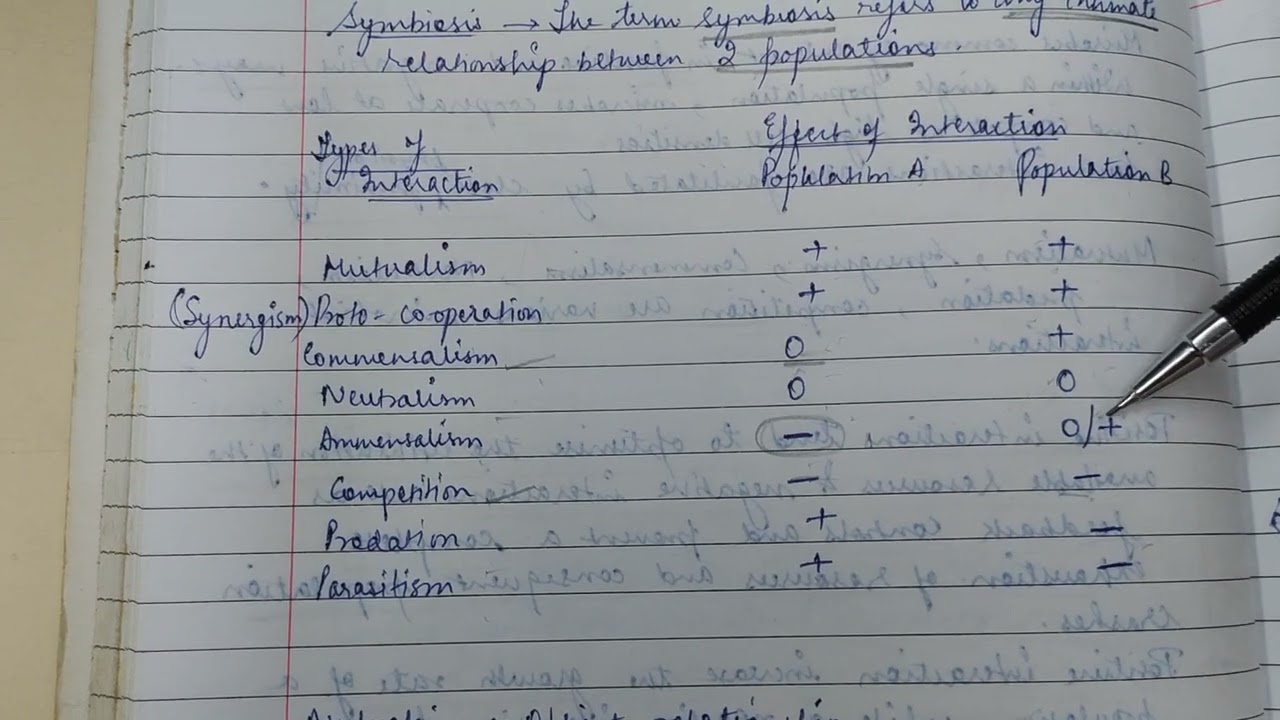 Symbiosis → The term symbiosis refers to any intimate
relationship between 2 populations.
Types of Interaction
Effect of Interaction
Population A Population B
Mutualism + +
(Synergism) Proto-cooperation + +
Commensalism O +
Neutralism O O
Ammensalism − O/+
Competition − −
Predation + −
Parasitism + −